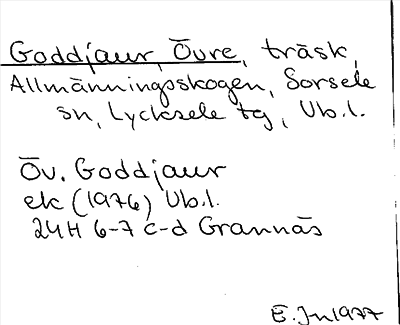 Goddjaur, Övre, träsk,
Allmänningsskogen, Sorsele
sn, Lycksele tg, Vb.l.
Öv. Goddjaur
ek (1976) Vb.l.
24H 6-7 c-d Grannäs
E.Jn1977